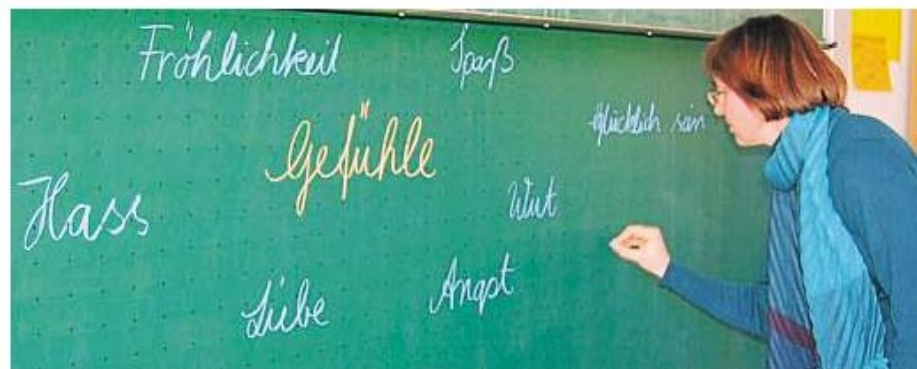 Fröhlichkeit
Spaß
glücklich sein
Gefühle
Hass
Wut
Liebe
Angst